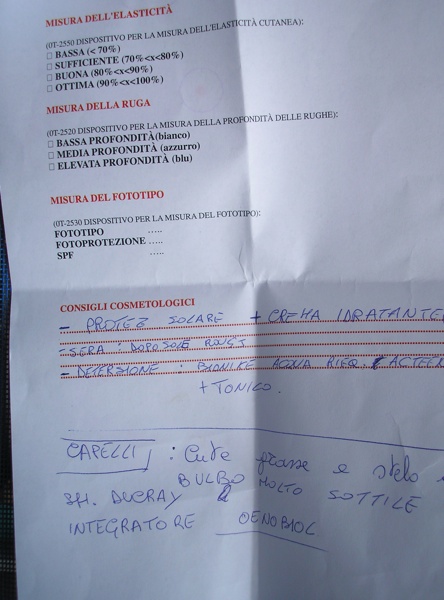 MISURA DELL'ELASTICITÀ
(0T-2550 DISPOSITIVO PER LA MISURA DELL'ELASTICITÀ CUTANEA):
□ BASSA (< 70%)
□ SUFFICIENTE (70%<x<80%)
□ BUONA (80%<x<90%)
□ OTTIMA (90%<x<100%)
MISURA DELLA RUGA
(0T-2520 DISPOSITIVO PER LA MISURA DELLA PROFONDITÀ DELLE RUGHE):
□ BASSA PROFONDITÀ (bianco)
□ MEDIA PROFONDITÀ (azzurro)
□ ELEVATA PROFONDITÀ (blu)
MISURA DEL FOTOTIPO
(0T-2530 DISPOSITIVO PER LA MISURA DEL FOTOTIPO):
FOTOTIPO .....
FOTOPROTEZIONE .....
SPF .....
CONSIGLI COSMETOLOGICI
- PROTEZ SOLARE + CREMA IDRATANTE
- SERA : DOPOSOLE
- DETERSIONE : BIONIKE ACNA
+ TONICO.
CAPELLI : Cute grasse e stelo
BULBO MOLTO SOTTILE
SH. DUCRAY
INTEGRATORE OENOBIOL